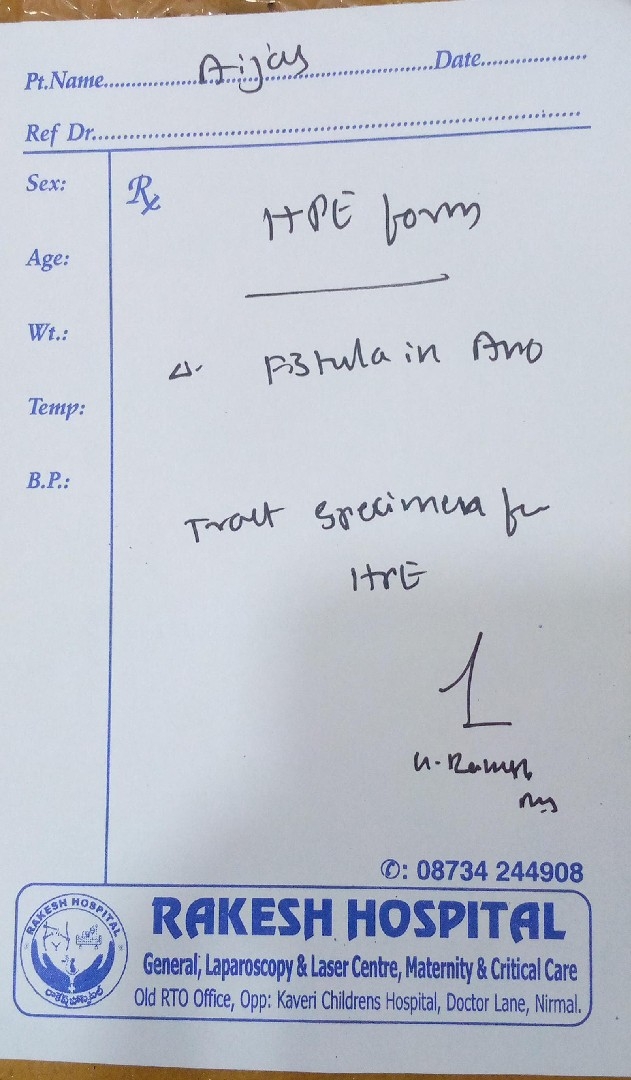 Pt.Name.......Aijas.......Date.......
Ref Dr.......
Sex:
Rx
HPE form
Age:
Wt.:
Δ. Fistula in Ano
Temp:
B.P.:
Tract specimen for
HPE
✆: 08734 244908
RAKESH HOSPITAL
RAKESH HOSPITAL
General, Laparoscopy & Laser Centre, Maternity & Critical Care
Old RTO Office, Opp: Kaveri Childrens Hospital, Doctor Lane, Nirmal.